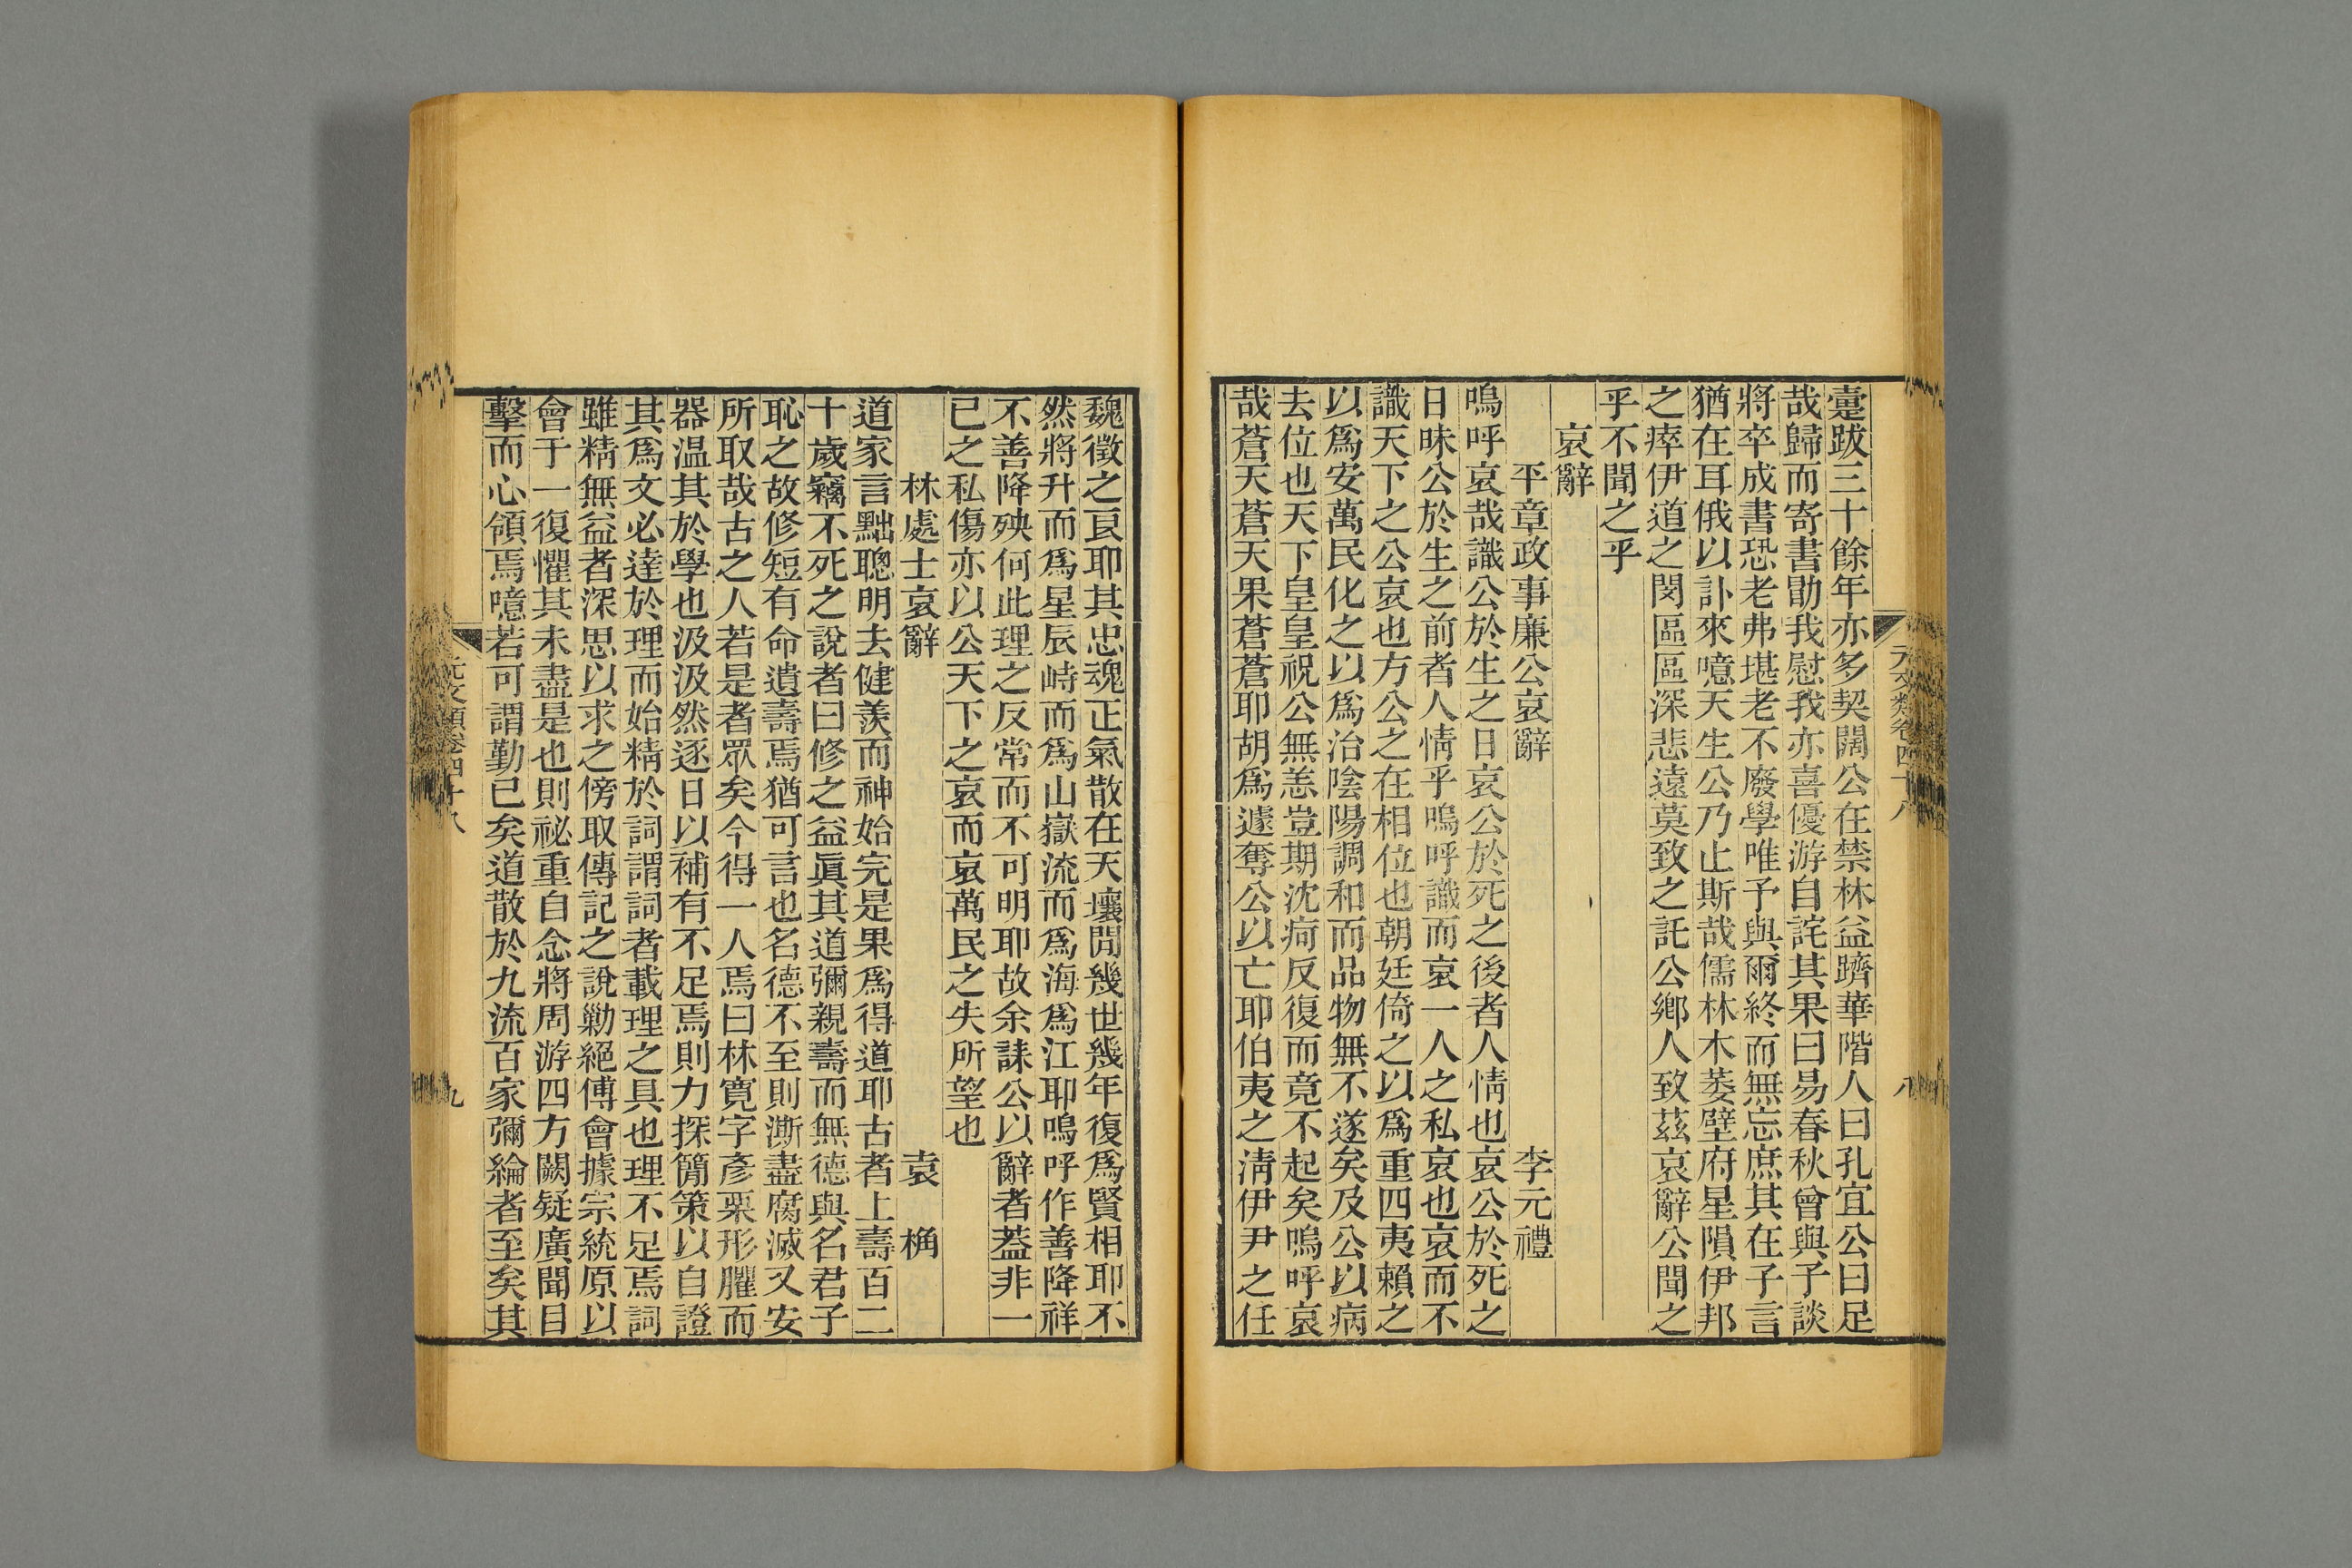 疐跋三十餘年亦多契闊公在禁林益躋華階人曰孔宜公曰足
哉歸而寄書勖我慰我亦喜優游自詫其果曰易春秋曾與予談
將卒成書恐老弗堪老不廢學唯予與爾終而無忘庶其在子言
猶在耳俄以訃來噫天生公乃止斯哉儒林木萎壁府星隕伊邦
之瘁伊道之閔區區深悲遠莫致之託公鄉人致茲哀辭公聞之
乎不聞之乎
哀辭
平章政事廉公哀辭 李元禮
嗚呼哀哉識公於生之日哀公於死之後者人情也哀公於死之
日昧公於生之前者人情乎嗚呼識而哀一人之私哀也哀而不
識天下之公哀也方公之在相位也朝廷倚之以爲重四夷賴之
以爲安萬民化之以爲治陰陽調和而品物無不遂矣及公以病
去位也天下皇皇祝公無恙豈期沈痾反復而竟不起矣嗚呼哀
哉蒼天蒼天果蒼蒼耶胡爲遽奪公以亡耶伯夷之淸伊尹之任
元文類卷四十八 八
魏徵之良耶其忠魂正氣散在天壤閒幾世幾年復爲賢相耶不
然將升而爲星辰峙而爲山嶽流而爲海爲江耶嗚呼作善降祥
不善降殃何此理之反常而不可明耶故余誄公以辭者蓋非一
已之私傷亦以公天下之哀而哀萬民之失所望也
林處士哀辭 袁桷
道家言黜聰明去健羨而神始完是果爲得道耶古者上壽百二
十歲竊不死之說者曰修之益眞其道彌親壽而無德與名君子
恥之故修短有命遺壽焉猶可言也名德不至則澌盡腐滅又安
所取哉古之人若是者眾矣今得一人焉曰林寬字彥栗形臞而
器温其於學也汲汲然逐日以補有不足焉則力探簡策以自證
其爲文必達於理而始精於詞謂詞者載理之具也理不足焉詞
雖精無益者深思以求之傍取傳記之說勦絕傅會據宗統原以
會于一復懼其未盡是也則祕重自念將周游四方闕疑廣聞目
擊而心領焉噫若可謂勤已矣道散於九流百家彌綸者至矣其
元文類卷四十八 九